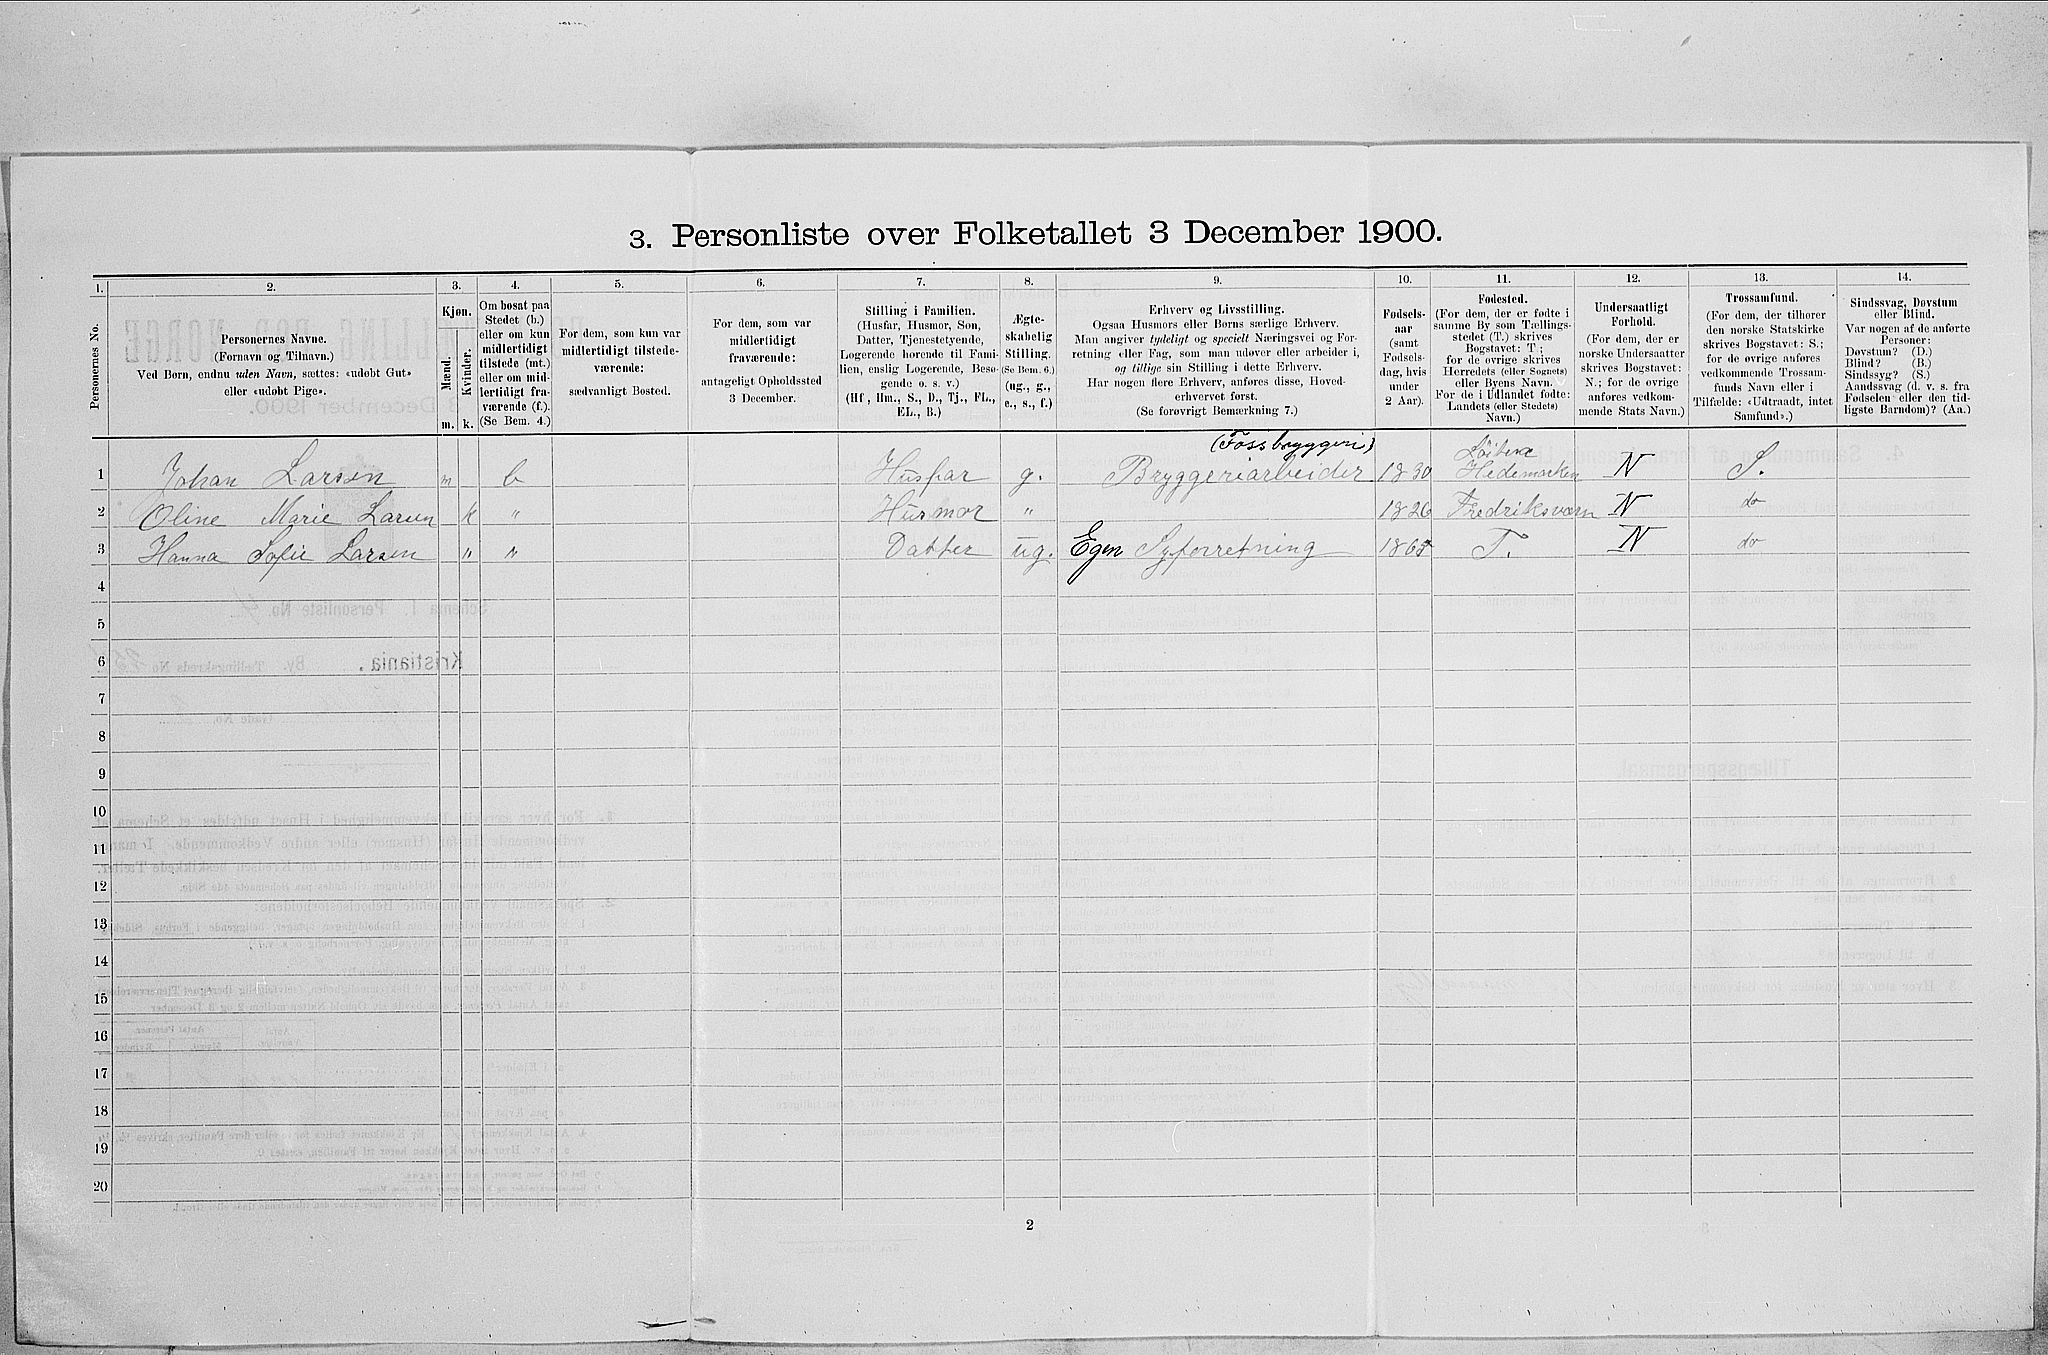 3. Personliste over Folketallet 3 December 1900.
1. 2. 3. 4. 5. 6. 7. 8. 9. 10. 11. 12. 13. 14.
Personernes No.
Personernes Navne.
(Fornavn og Tilnavn.)
Ved Børn, endnu uden Navn, sættes: «udøbt Gut»
eller «udøbt Pige».
Kjøn.
Mænd.
Kvinder.
m. k.
Om bosat paa
Stedet (b.)
eller om kun
midlertidigt
tilstede (mt.)
eller om mid-
lertidigt fra-
værende (f.).
(Se Bem. 4.)
For dem, som kun var
midlertidigt tilstede-
værende:
sædvanligt Bosted.
For dem, som var
midlertidigt
fraværende:
antageligt Opholdssted
3 December.
Stilling i Familien.
(Husfar, Husmor, Søn,
Datter, Tjenestetyende,
Logerende hørende til Fami-
lien, enslig Logerende, Besø-
gende o. s. v.)
(Hf, Hm., S., D., Tj., FL.,
EL., B.)
Ægte-
skabelig
Stilling.
(Se Bem. 6.)
(ug., g.,
e., s., f.)
Erhverv og Livsstilling.
Ogsaa Husmors eller Børns særlige Erhverv.
Man angiver tydeligt og specielt Næringsvei og For-
retning eller Fag, som man udøver eller arbeider i,
og tillige sin Stilling i dette Erhverv.
Har nogen flere Erhverv, anføres disse, Hoved-
erhvervet først.
(Se forøvrigt Bemærkning 7.)
Fødsels-
aar
(samt
Fødsels-
dag, hvis
under
2 Aar).
Fødested.
(For dem, der er fødte i
samme By som Tællings-
stedet (T.) skrives
Bogstavet: T;
for de øvrige skrives
Herredets (eller Sognets)
eller Byens Navn.
For de i Udlandet fødte:
Landets (eller Stedets)
Navn.)
Undersaatligt
Forhold.
(For dem, der er
norske Undersaatter
skrives Bogstavet:
N.; for de øvrige
anføres vedkom-
mende Stats Navn.)
Trossamfund.
(For dem, der tilhører
den norske Statskirke
skrives Bogstavet: S.;
for de øvrige anføres
vedkommende Trossam-
funds Navn eller i
Tilfælde: «Udtraadt, intet
Samfund».)
Sindssvag, Døvstum
eller Blind.
Var nogen af de anførte
Personer:
Døvstum? (D.)
Blind? (B.)
Sindssyg? (S.)
Aandssvag (d. v. s. fra
Fødselen eller den tid-
ligste Barndom)? (Aa.)
(Fossbryggeri)
1 Johan Larsen m b Husfar g. Bryggeriarbeider 1830 Hedemarken N S.
2 Oline Marie Larsen k " Husmor " 1826 Fredriksværn N do
3 Hanna Sofie Larsen " " Datter ug. Egen Syforretning T. N do
4
5
6
7
8
9
10
11
12
13
14
15
16
17
18
19
20
2